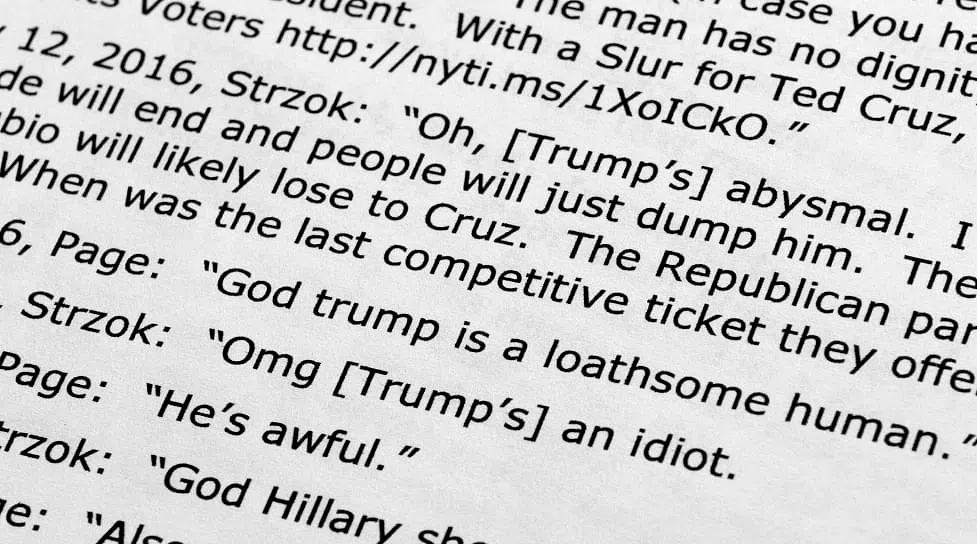 case you ha
The man has no dignit
sident. With a Slur for Ted Cruz,
ts Voters http://nyti.ms/1XoICkO.”
12, 2016, Strzok: “Oh, [Trump’s] abysmal. I
de will end and people will just dump him. The
bio will likely lose to Cruz. The Republican par
When was the last competitive ticket they offe
6, Page: “God trump is a loathsome human.”
Strzok: “Omg [Trump’s] an idiot.
Page: “He’s awful.”
trzok: “God Hillary sh
ge: “Also